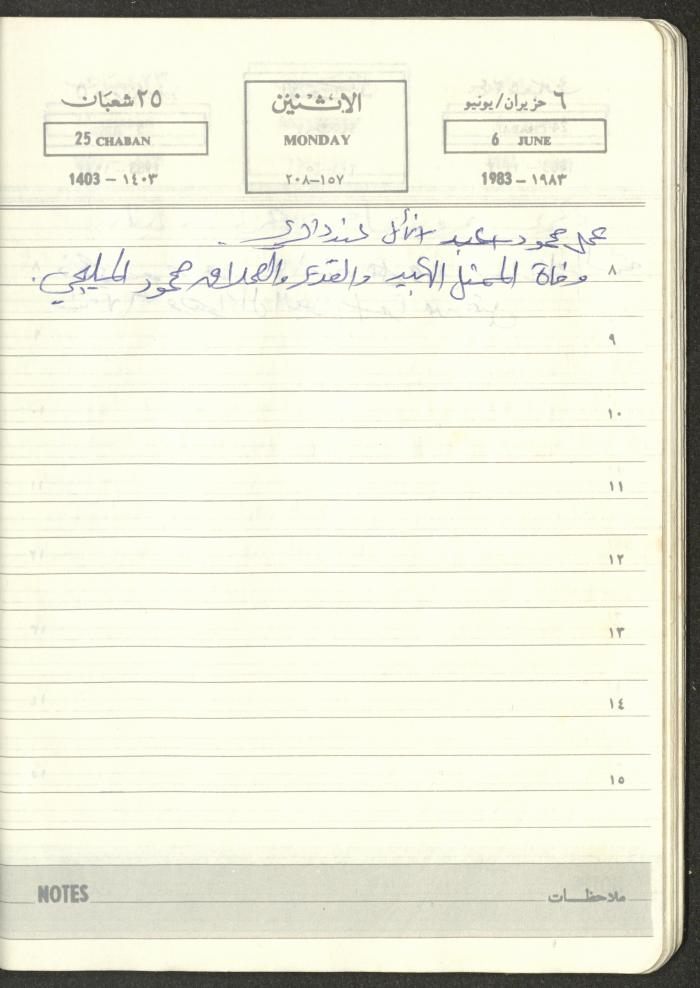 ٢٥ شعبان الاثنين ٦ حزيران/يونيو
25 CHABAN MONDAY 6 JUNE
1403 – ١٤٠٣ ٢٠٨–١٥٧ 1983 – ١٩٨٣
عمل محمود عند
٨ وفاة الممثل الكبير والقدير والعملاق محمود المليجي.
٩
١٠
١١
١٢
١٣
١٤
١٥
NOTES ملاحظات